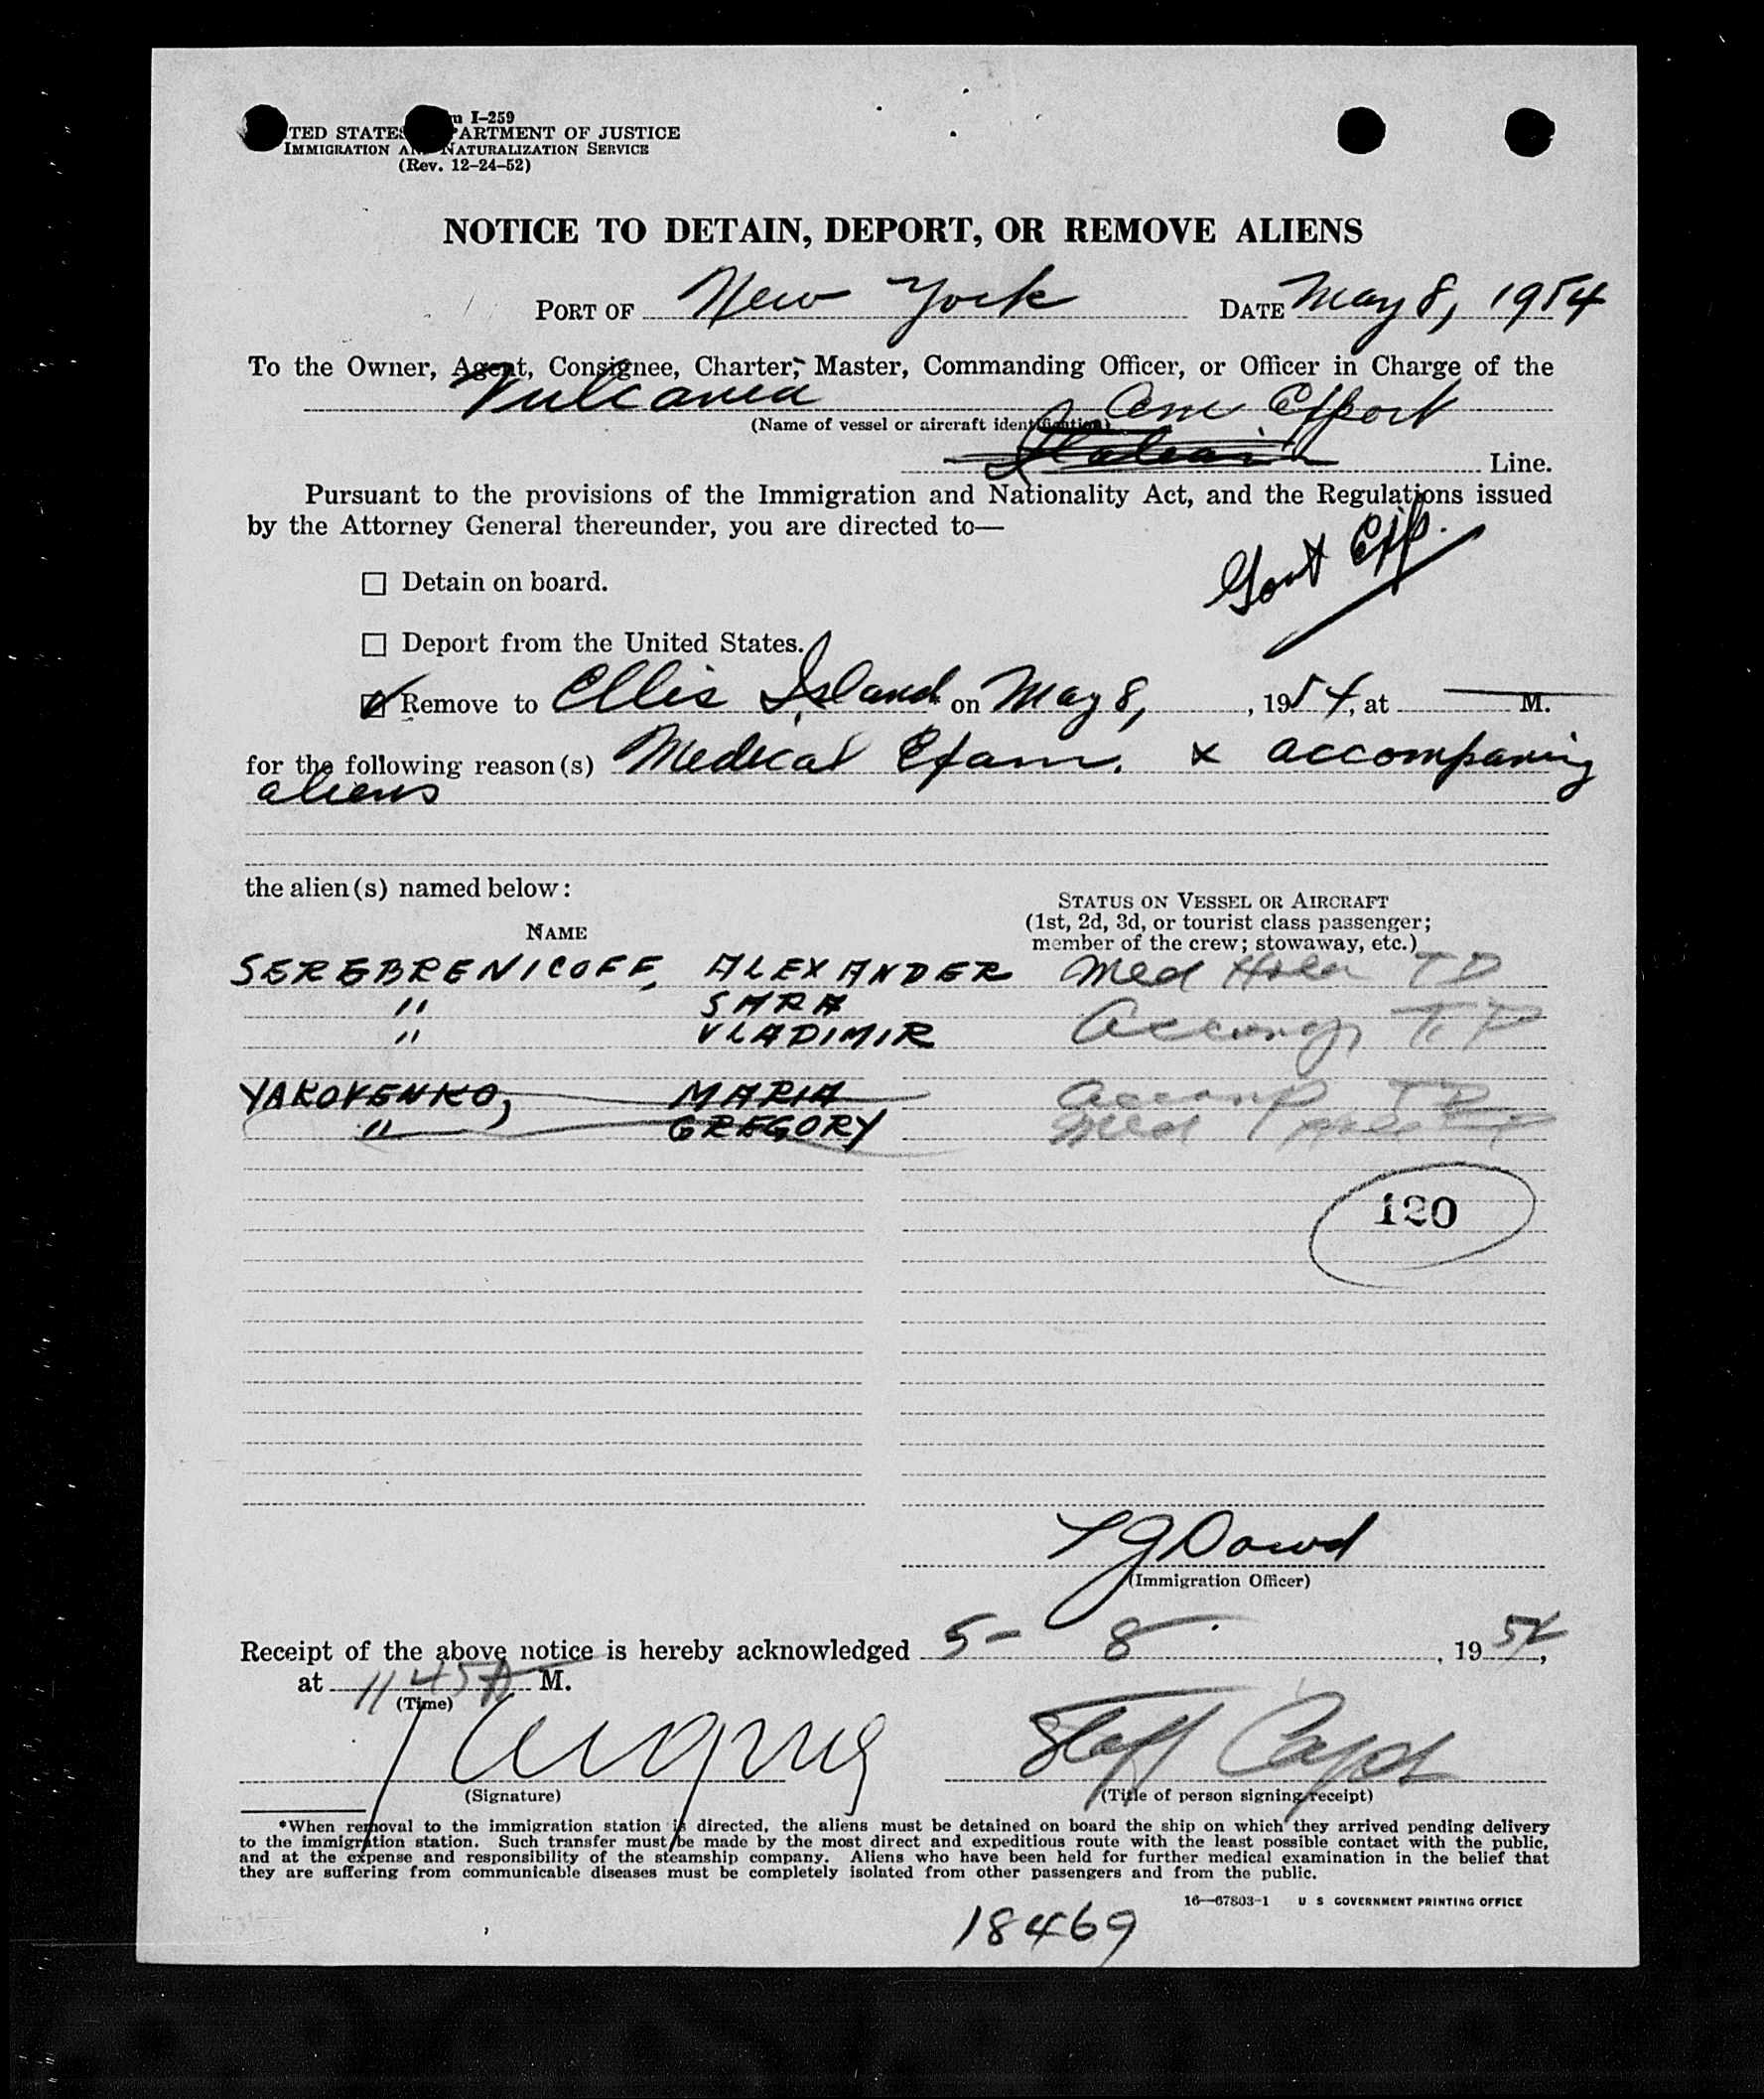 m I-259
TED STATES PARTMENT OF JUSTICE
IMMIGRATION AN NATURALIZATION SERVICE
(Rev. 12-24-52)
NOTICE TO DETAIN, DEPORT, OR REMOVE ALIENS
PORT OF New York DATE May 8, 1954
To the Owner, Agent, Consignee, Charter, Master, Commanding Officer, or Officer in Charge of the
Vulcania Am Export
(Name of vessel or aircraft identification)
Italian Line.
Pursuant to the provisions of the Immigration and Nationality Act, and the Regulations issued
by the Attorney General thereunder, you are directed to—
Govt Exp.
☐ Detain on board.
☐ Deport from the United States.
☑ Remove to Ellis Island on May 8, , 1954, at M.
for the following reason(s) Medical Exam. & accompaning
aliens
the alien(s) named below:
NAME
STATUS ON VESSEL OR AIRCRAFT
(1st, 2d, 3d, or tourist class passenger;
member of the crew; stowaway, etc.)
SEREBRENICOFF, ALEXANDER Med Hold TD
" SARA
" VLADIMIR Accomp TD
YAKOVENKO, MARIA Accomp TD
" GREGORY Med
120
Dowd
(Immigration Officer)
Receipt of the above notice is hereby acknowledged 5- 8 , 1954,
at 11 45 A M.
(Time)
Staff Capt
(Signature)
(Title of person signing receipt)
*When removal to the immigration station is directed, the aliens must be detained on board the ship on which they arrived pending delivery
to the immigration station. Such transfer must be made by the most direct and expeditious route with the least possible contact with the public,
and at the expense and responsibility of the steamship company. Aliens who have been held for further medical examination in the belief that
they are suffering from communicable diseases must be completely isolated from other passengers and from the public.
16—67803-1 U S GOVERNMENT PRINTING OFFICE
18469